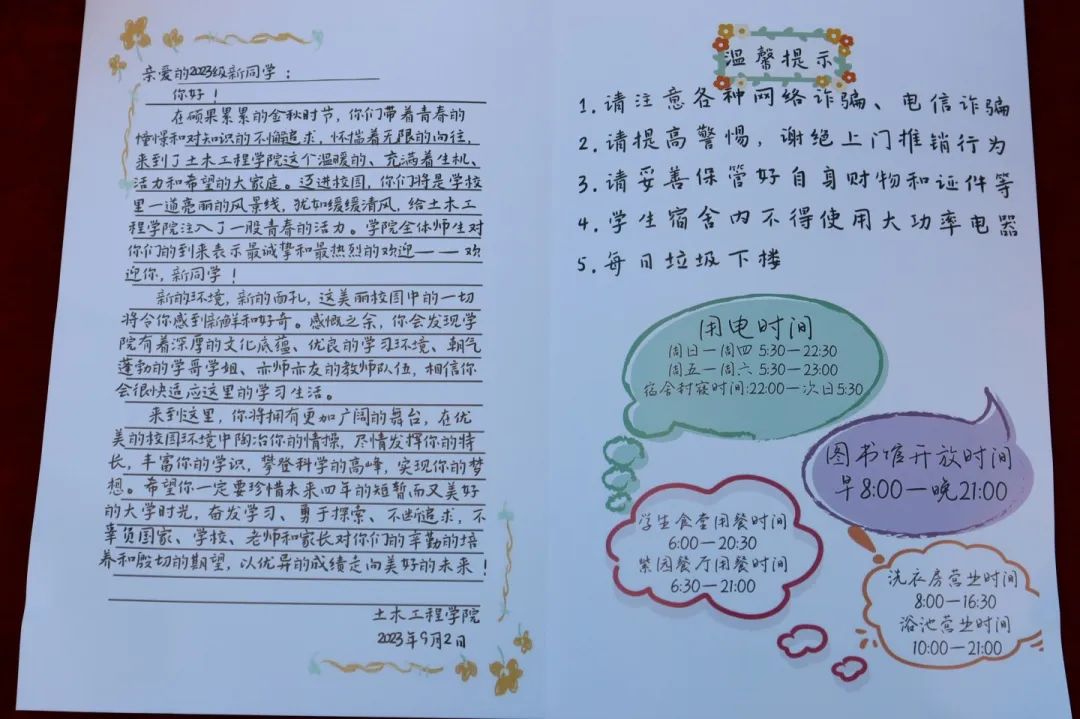 亲爱的2023级新同学：
你好！
在硕果累累的金秋时节，你们带着青春的
憧憬和对知识的不懈追求，怀揣着无限的向往，
来到了土木工程学院这个温暖的、充满着生机、
活力和希望的大家庭。迈进校园，你们将是学校
里一道亮丽的风景线，犹如缓缓清风，给土木工
程学院注入了一股青春的活力。学院全体师生对
你们的到来表示最诚挚和最热烈的欢迎——欢
迎你，新同学！
新的环境，新的面孔，这美丽校园中的一切
将令你感到新鲜和好奇。感慨之余，你会发现学
院有着深厚的文化底蕴、优良的学习环境、朝气
蓬勃的学哥学姐、亦师亦友的教师队伍，相信你
会很快适应这里的学习生活。
来到这里，你将拥有更加广阔的舞台，在优
美的校园环境中陶冶你的情操，尽情发挥你的特
长，丰富你的学识，攀登科学的高峰，实现你的梦
想。希望你一定要珍惜未来四年的短暂而又美好
的大学时光，奋发学习、勇于探索、不断追求，不
辜负国家、学校、老师和家长对你们的辛勤的培
养和殷切的期望，以优异的成绩走向美好的未来！
土木工程学院
2023年9月2日
温馨提示
1.请注意各种网络诈骗、电信诈骗
2.请提高警惕，谢绝上门推销行为
3.请妥善保管好自身财物和证件等
4.学生宿舍内不得使用大功率电器
5.每日垃圾下楼
用电时间
周日一周四 5:30—22:30
周五一周六 5:30—23:00
宿舍封寝时间:22:00—次日5:30
图书馆开放时间
早8:00—晚21:00
学生食堂用餐时间
6:00—20:30
紫园餐厅用餐时间
6:30—21:00
洗衣房营业时间
8:00—16:30
浴池营业时间
10:00—21:00